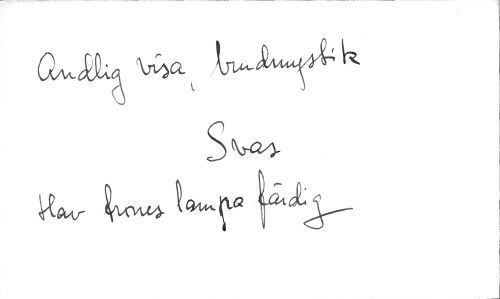 Andlig visa, brudmystik
Svas
Hav trones lampa färdig